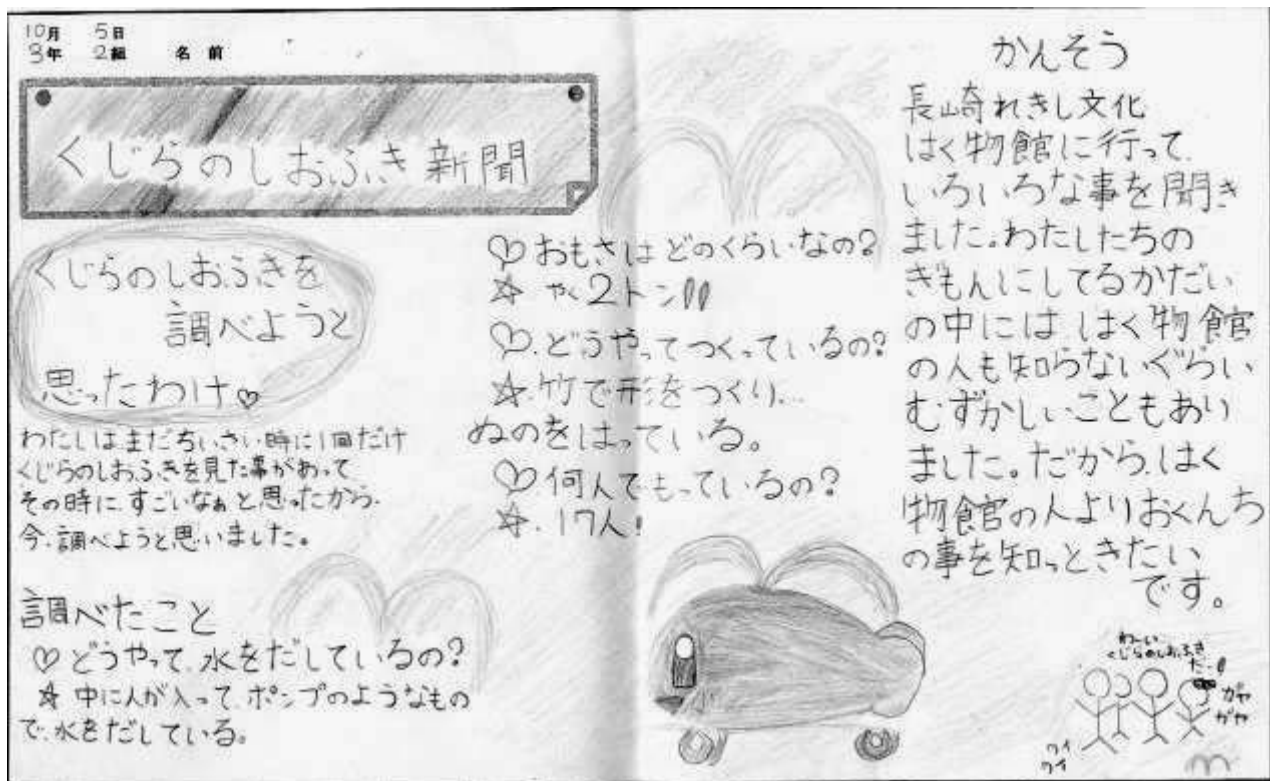 10月 5日
3年 2組 名前
くじらのしおふき新聞
くじらのしおふきを
調べようと
思ったわけ♡
わたしはまだちいさい時に1回だけ
くじらのしおふきを見た事があって、
その時に、すごいなぁと思ったから、
今、調べようと思いました。
調べたこと
♡どうやって、水をだしているの?
☆ 中に人が入って、ポンプのようなもの
で、水をだしている。
♡おもさはどのくらいなの?
☆ やく2トン!!
♡、どうやってつくっているの?
☆、竹で形をつくり、…
ぬのをはっている。
♡、何人でもっているの?
☆、17人!
かんそう
長崎れきし文化
はく物館に行って、
いろいろな事を聞き
ました。わたしたちの
ぎもんにしてるかだい
の中には、はく物館
の人も知らないぐらい
むずかしいこともあり
ました。だから、はく
物館の人よりおくんち
の事を知っときたい
です。
わーい
くじらのしおふき
だー!
ガヤ
ガヤ
ワイ
ワイ